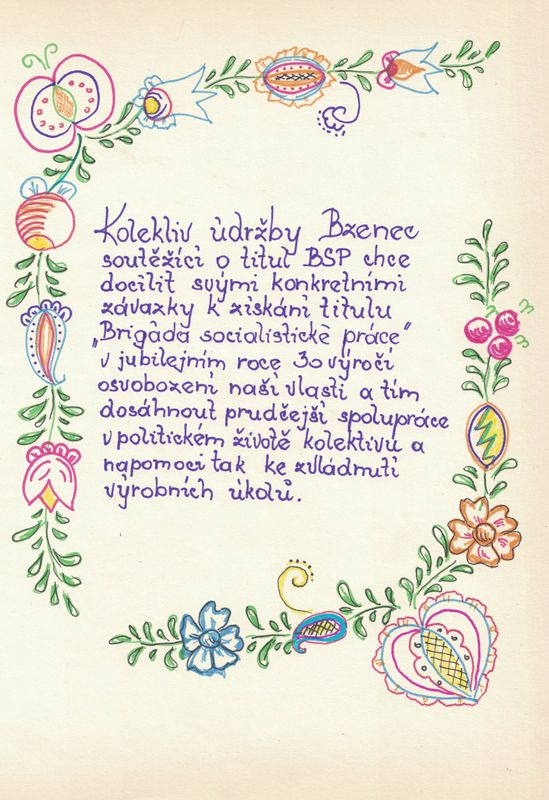 Kolektiv údržby Bzenec
soutěžící o titul BSP chce
docílit svými konkretními
závazky k získání titulu
„Brigáda socialistické práce"
v jubilejním roce 30 výročí
osvobození naší vlasti a tím
dosáhnout prudčejší spolupráce
v politickém životě kolektivu a
napomoci tak ke zvládnutí
výrobních úkolů.